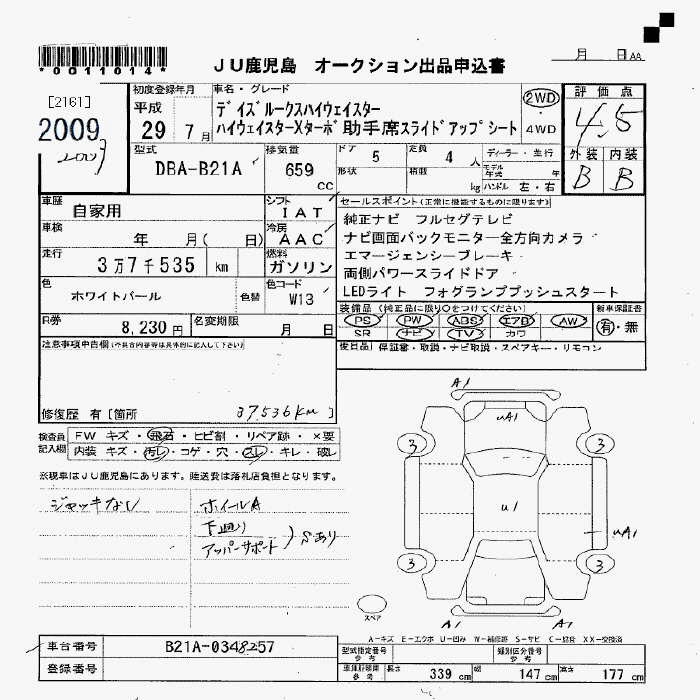 月 日 AA
*0011014*
JU鹿児島 オークション出品申込書
[2161]
2009
2009
初度登録年月
平成
29 7月
車名・グレード
デイズルークスハイウェイスター
ハイウェイスターXターボ 助手席スライドアップシート
2WD
4WD
評価点
4.5
外装 内装
B B
型式
DBA-B21A
排気量
659
cc
ドア 5
定員 4 人
形状
積載 kg
ディーラー・並行
モデル年式 年
ハンドル 左・右
車歴
自家用
シフト
IAT
車検
年 月( 日)
冷房
AAC
走行
3万7千535 km
燃料
ガソリン
色
ホワイトパール
色替
色コード
W13
R券
8,230円
名変期限
月 日
セールスポイント(正常に機能するものに限ります)
純正ナビ フルセグテレビ
ナビ画面バックモニター全方向カメラ
エマージェンシーブレーキ
両側パワースライドドア
LEDライト フォグランププッシュスタート
装備品(純正品に限り○をつけてください)
PS PW ABS エアB AW
SR ナビ TV カワ
新車保証書
有・無
後日品 保証書・取説・ナビ取説・スペアキー・リモコン
注意事項申告欄(不具合内容等は具体的に記入して下さい)
修復歴 有[箇所 37,536km]
検査員記入欄
FW キズ・飛石・ヒビ割・リペア跡・×要
内装 キズ・汚レ・コゲ・穴・スレ・キレ・破レ
※現車はJU鹿児島にあります。陸送費は落札店負担となります。
ジャッキなし
ホイールA
下廻り
アッパーサポート
)Sあり
A1
uA1
3
3
u1
uA1
3
3
A1
A1
スペア
A-キズ E-エクボ U-凹み W-補修跡 S-サビ C-腐食 XX-交換済
車台番号 B21A-0348257
登録番号
型式指定番号 参考
類別区分番号 参考
長さ 339 cm
幅 147 cm
高さ 177 cm